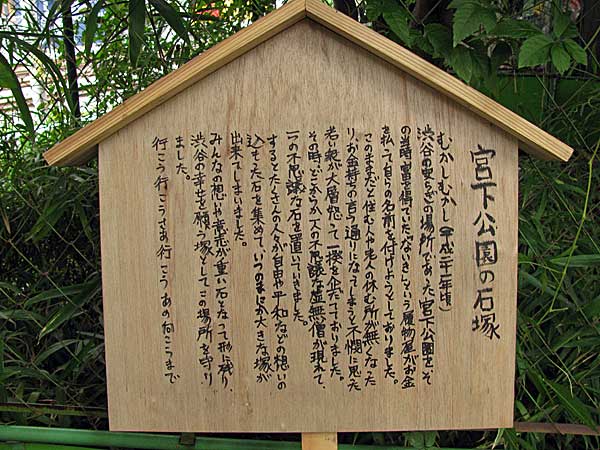 宮下公園の石塚
むかしむかし(平成二十一年頃)
渋谷の安らぎの場所であった宮下公園をそ
の当時、富を得ていた「ないき」という履物屋がお金
を払って自らの名前を付けようとしておりました。
このままだと住む人や老人の休む所が無くなった
り、お金持ちの言う通りになってしまうと不憫に思った
若い衆が大層怒って一揆を企だてておりました。
その時、どこからか一人の不思議な虚無僧が現れて、
一つの不思議な石を置いていきました。
するとたくさんの人々が自由や平和などの想いの
込もった石を集めて、いつのまにか大きな塚が
出来てしまいました。
みんなの想いや意志が重い石となって形に残り、
渋谷の幸せを願う塚としてこの場所を守り
ました。
行こう行こうさあ行こうあの向こうまで